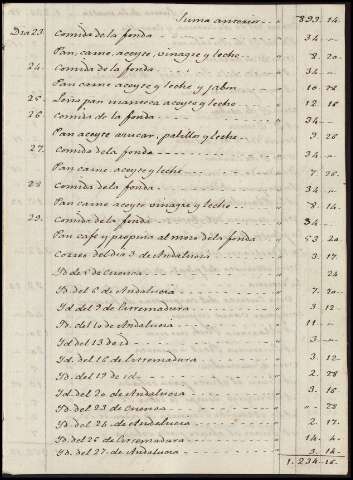 Suma anterior - - " 893. 14.
Dia 23. Comida de la fonda - - - " 34 "
Pan, carne, aceyte, vinagre y leche - - " 8. 20
24. Comida de la fonda - - - " 34 "
Pan carne aceyte y leche y jabon " 10 28
25. Leña pan manteca aceyte y leche - - " 12 16
26. Comida de la fonda - - - " 34 -
Pan aceyte azucar, palillo y leche - - " 3 26
27. Comida de la fonda - - - " 34 "
Pan carne aceyte y leche - - - " 7 26
28. Comida de la fonda - - - " 34 "
Pan carne aceyte vinagre y leche - - " 8. 14
29. Comida de la fonda - - - " 34 -
Pan café y propina al mozo de la fonda " 53 20
Correo del dia 3 de Andalucia - - " 3. 17
Yd de 5 de Cuenca - - - " 24
Yd. del 6 de Andalucia - - - " 7. 20
Yd del 9 de Extremadura - - - " 3 12
Yd. del 10 de Andalucia - - - " 11 "
Yd del 13 de id - - - " 3 "
Yd. del 16 de Extremadura - - - " 3. 12
Yd. del 19 de id - - - " 2. 28
Yd. del 20 de Andalucia - - - " 3. 16
Yd del 23 de Cuenca - - - " " 28
Yd. del 24 de Andalucia - - - " 2. 17.
Yd del 26 de Extremadura - - - " 14. 4
Yd. del 27 de Andalucia - - - " 3. 14
1. 234 16.